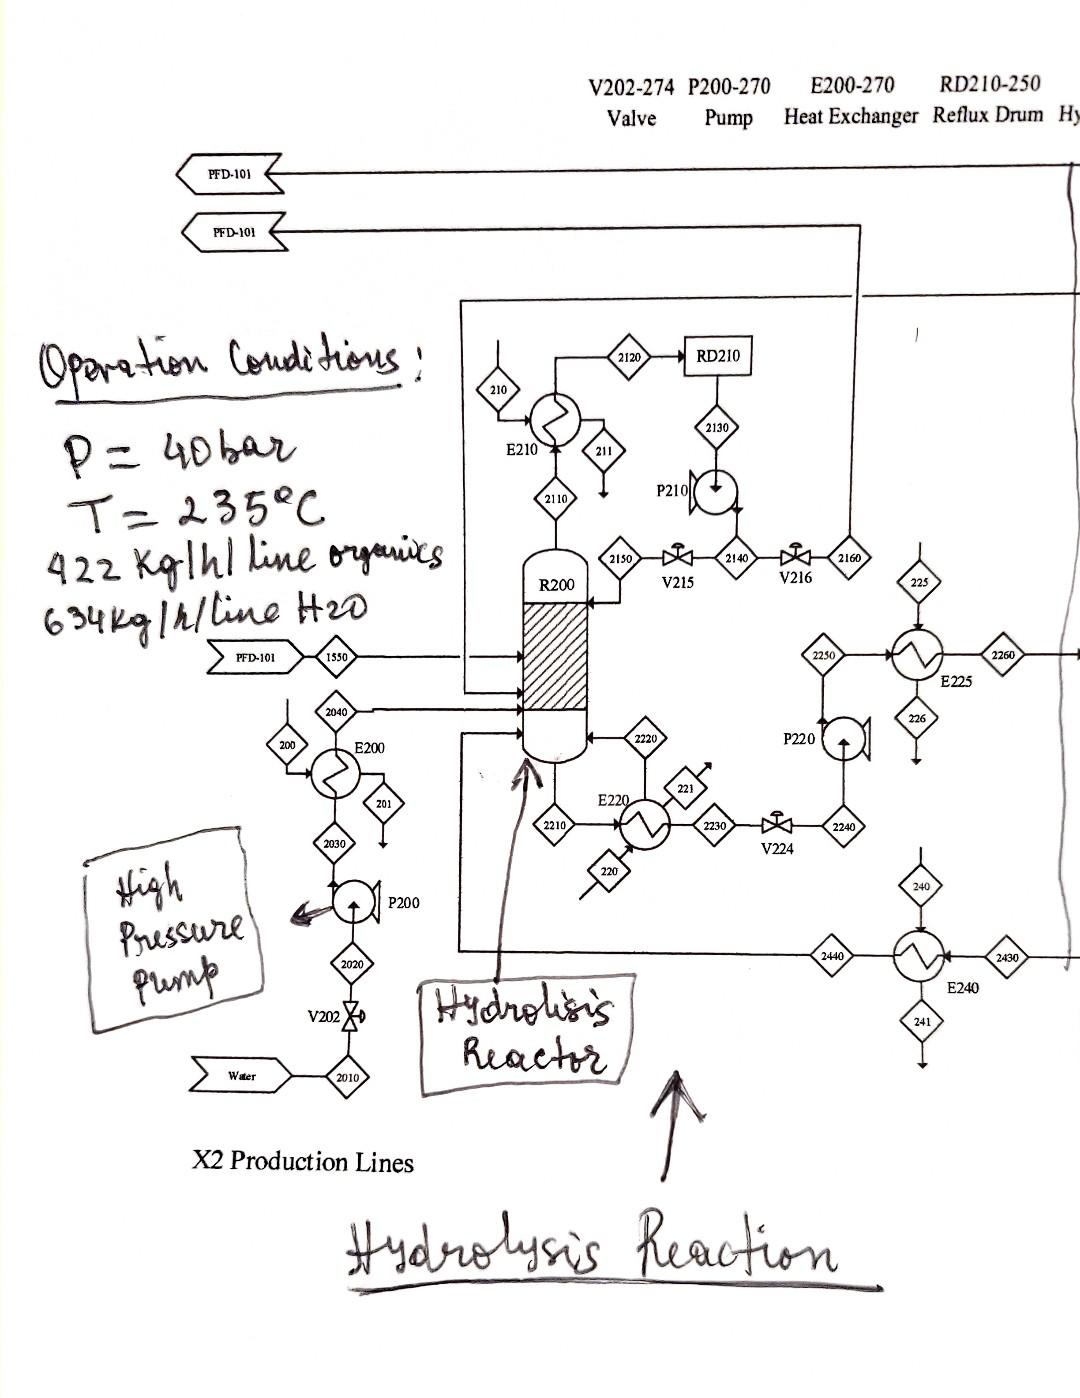 V202-274 P200-270 E200-270 RD210-250
Valve Pump Heat Exchanger Reflux Drum Hy
PFD-101
PFD-101
Operation Conditions:
P = 40bar
T = 235°C
422 Kg/h/line organics
634kg/h/line H2O
2120
RD210
210
E210
211
2130
2110
P210
R200
2150
V215
2140
V216
2160
225
PFD-101
1550
2250
2260
E225
2040
200
E200
201
2220
P220
226
E220
221
2210
2230
V224
2240
220
2030
High
Pressure
Pump
P200
240
2020
2440
2430
E240
V202
Hydrolisis
Reactor
241
Water
2010
X2 Production Lines
Hydrolysis Reaction